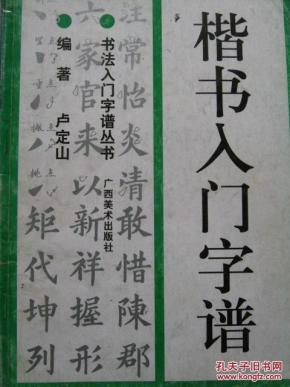 楷书入门字谱
书法入门字谱丛书
广西美术出版社
编著 卢定山
常怡炎清敢惜陳郡
六家官来以新祥握形
矩代坤列
孔夫子旧书网